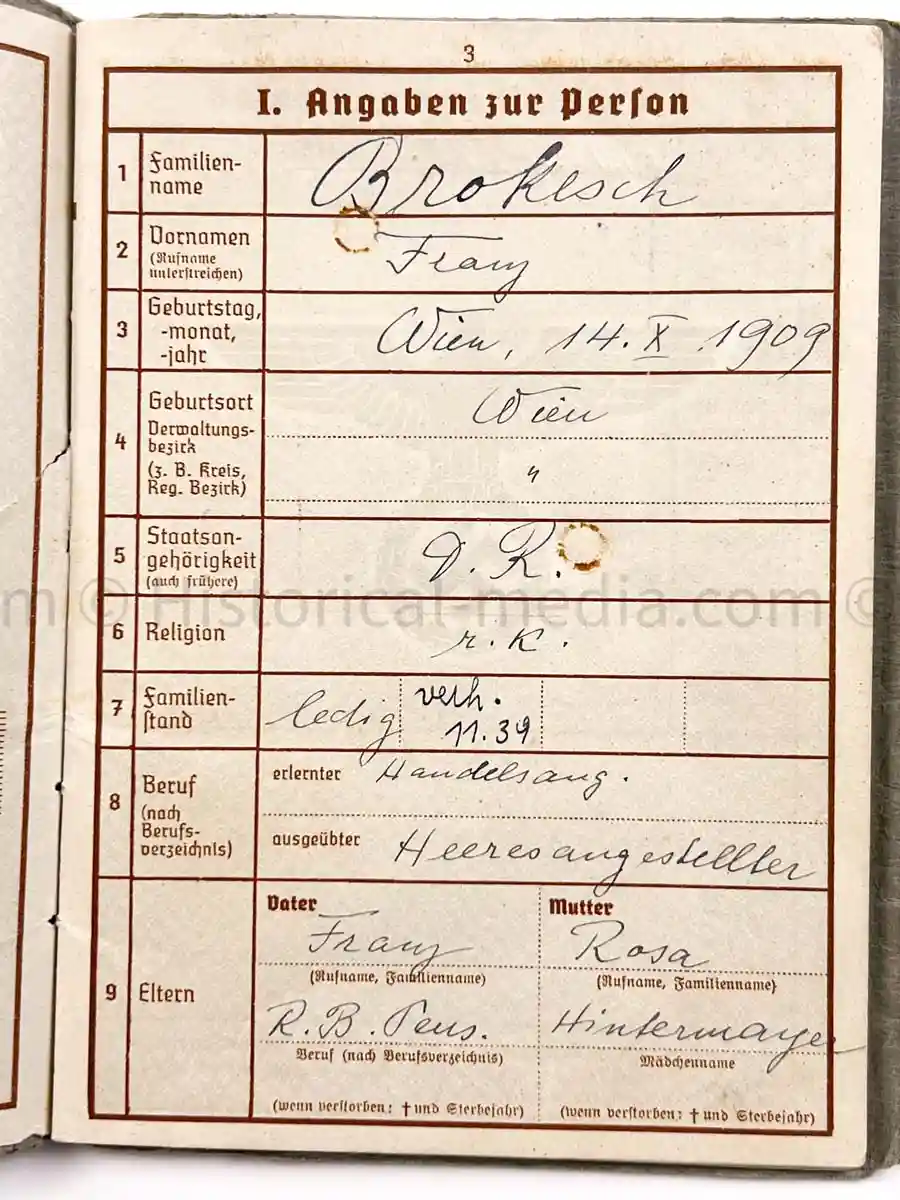 3
I. Angaben zur Person
1 Familien-
name
Brokesch
2 Vornamen
(Rufname
unterstreichen)
Franz
3 Geburtstag,
-monat,
-jahr
Wien, 14. X. 1909
4 Geburtsort
Verwaltungs-
bezirk
(z. B. Kreis,
Reg. Bezirk)
Wien
"
5 Staatsan-
gehörigkeit
(auch frühere)
D. R.
m © Historical-media.com ©
6 Religion
r. k.
7 Familien-
stand
ledig
verh.
11.39
8 Beruf
(nach
Berufs-
verzeichnis)
erlernter Handelsang.
ausgeübter Heeresangestellter
9 Eltern
Vater
Franz
(Rufname, Familienname)
R. B. Pens.
Beruf (nach Berufsverzeichnis)
(wenn verstorben: † und Sterbejahr)
Mutter
Rosa
(Rufname, Familienname)
Hintermayer
Mädchenname
(wenn verstorben: † und Sterbejahr)